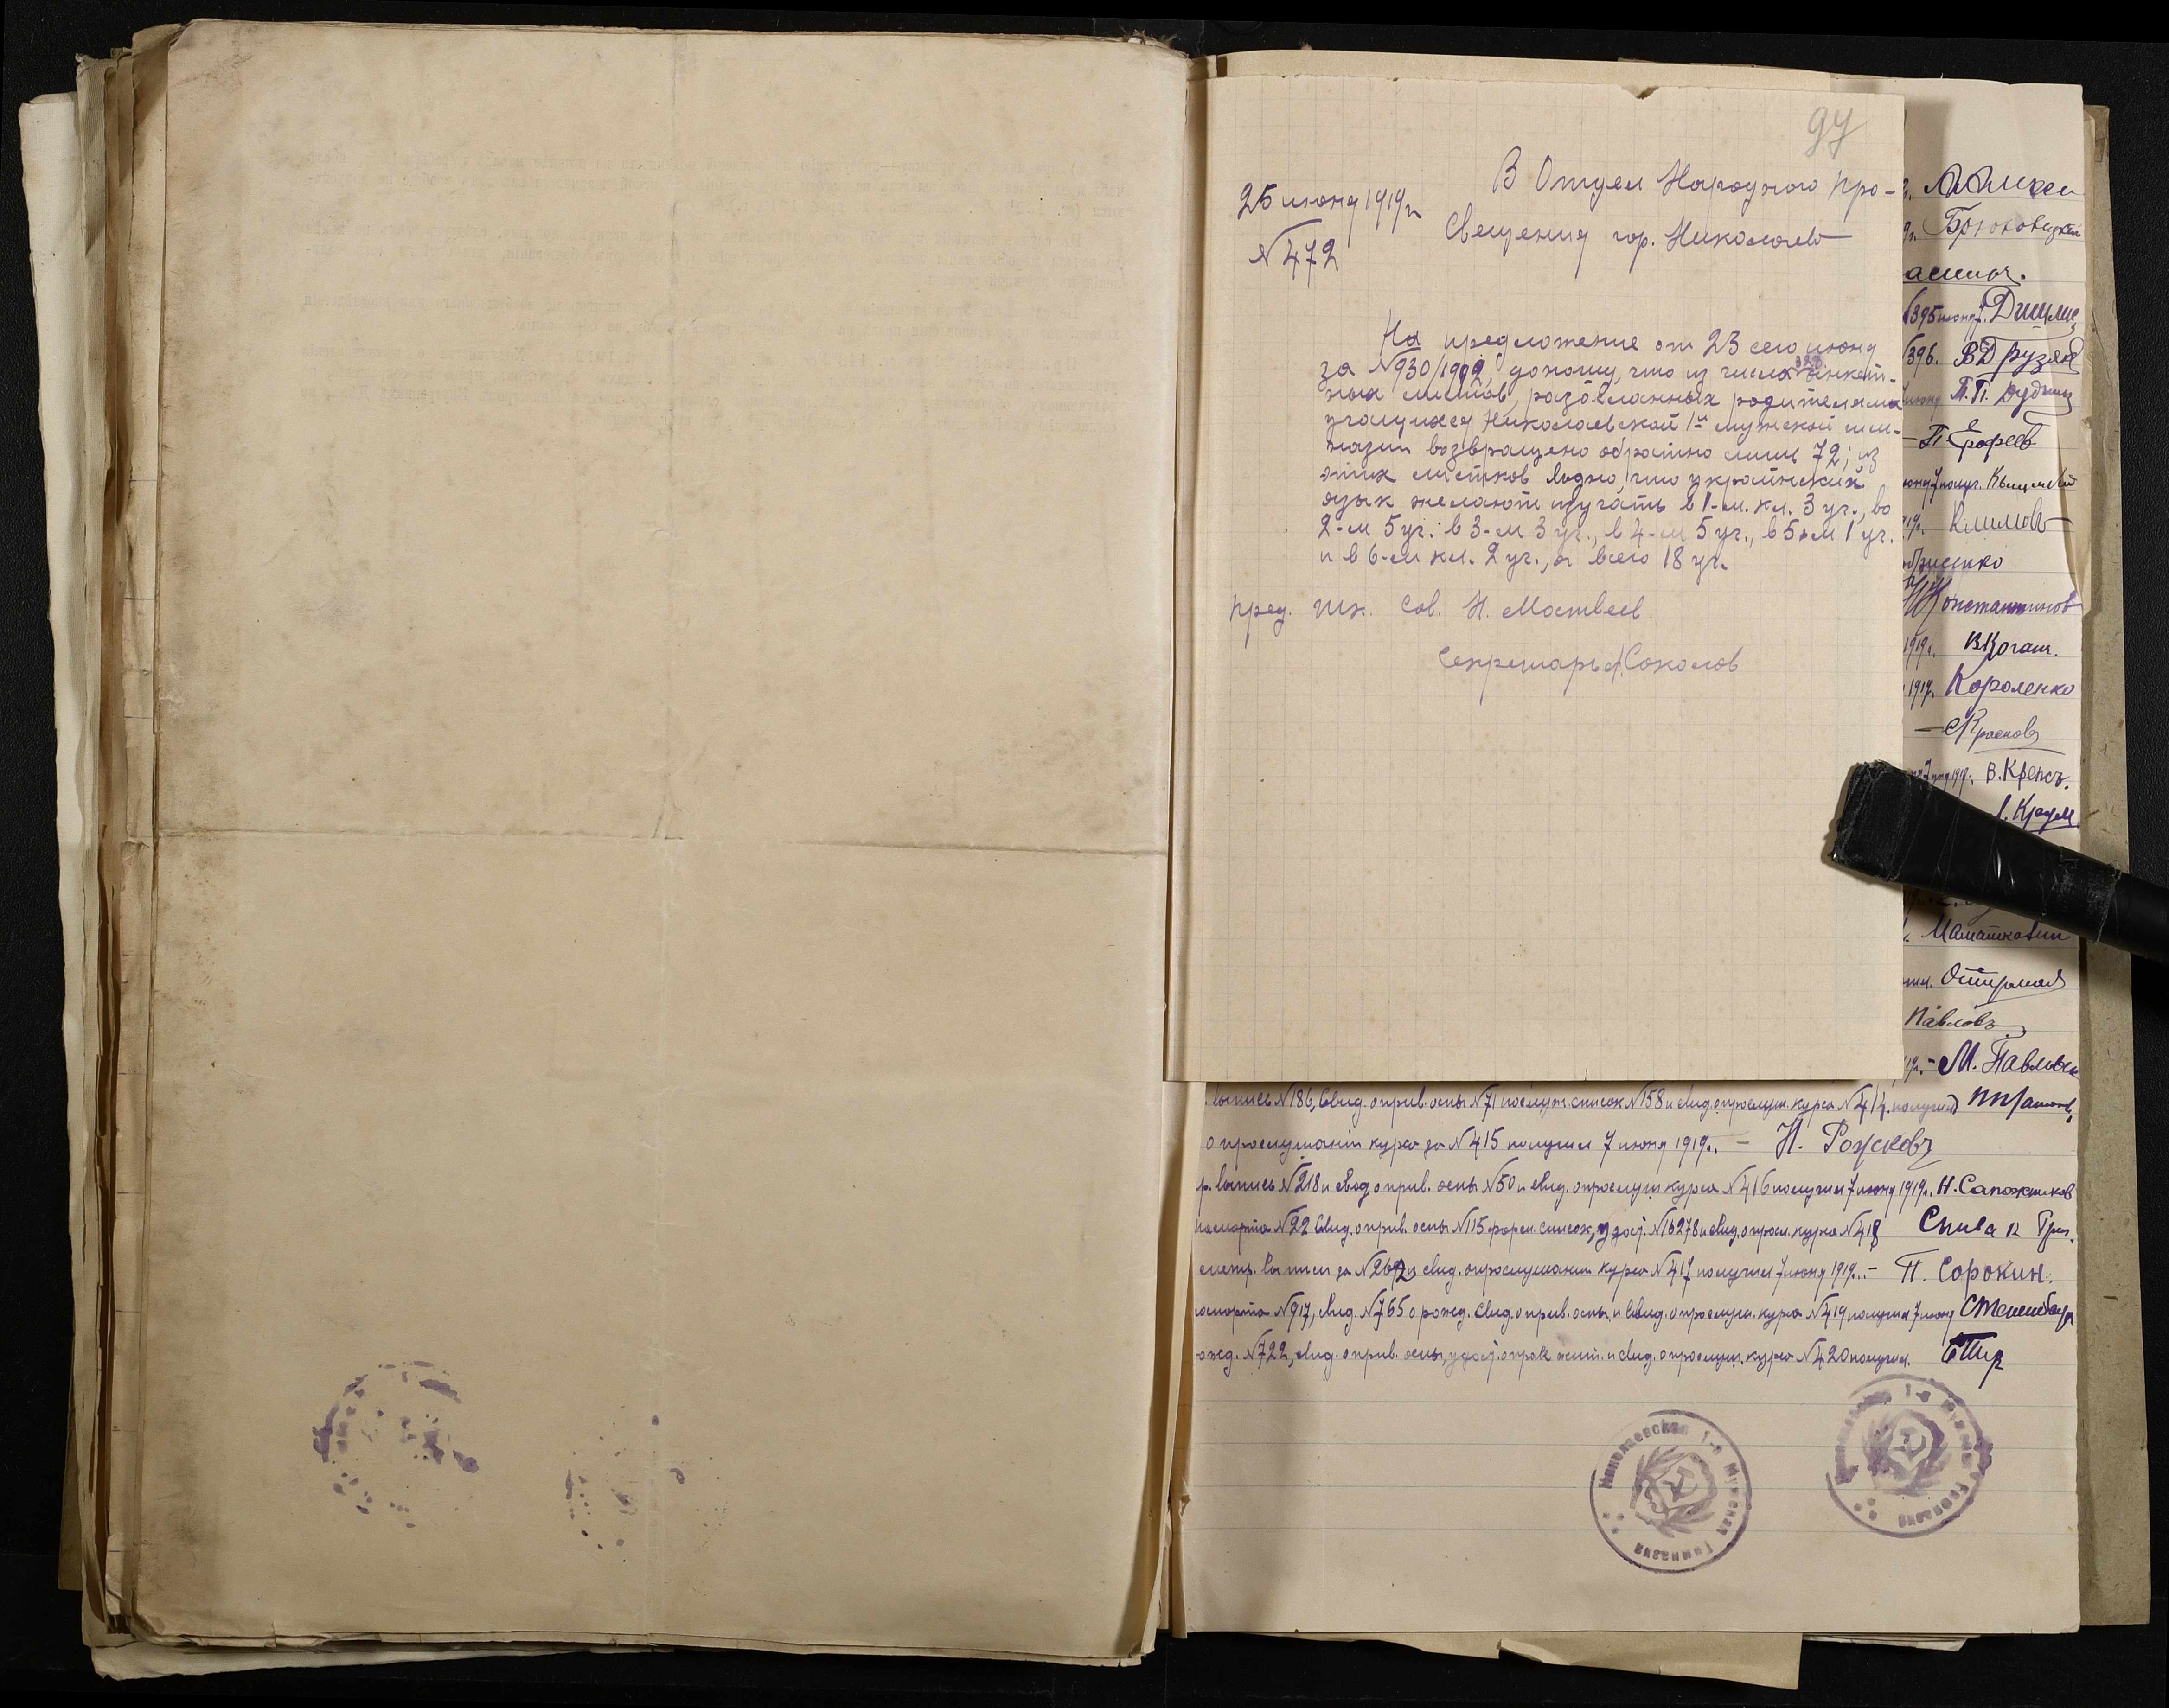 94
25 июня 1919 г.
№ 472
В Отдел Народного Про-
свещения гор. Николаева
На предложение от 23 сего июня
за № 930/1992, доношу, что из числа 320 анкет-
ных листов, разосланных родителям
учащихся Николаевской 1й мужской гим-
назии возвращено обратно лишь 72; из
этих листков видно, что украинский
язык желают изучать в 1-м. кл. 3 уч., во
2-м 5 уч.: в 3-м 3 уч., в 4-м 5 уч., в 5-м 1 уч.
и в 6-м кл. 2 уч., а всего 19 уч.
Пред. шк. Сов. Н. Матвеев
Секретарь А. Соколов
асипог.
№ 395 июня
№ 396. В Друзяк
П. Ерофеев
19г. Климов
Н Константинов
1919г. В Коган.
1919. Короленко
Краснов
7 июня 1919г. В. Крепсъ.
Маматкавин
Павловъ
М. Павлов
выпись № 186, Свид. о прив. оспы № 71 послуж. список № 158 и свид. о прослуш. курса № 414. получил
о прослушании курса за № 415 получил 7 июня 1919г. – Н. Рожковъ
р. выпись № 218 и свид о прив. оспы № 50 и свид. о прослуш курса № 416 получил 7 июня 1919г. Н. Сапожников
паспорта № 22 Свид. о прив. оспы № 115 форм. список, удост. № 16278 и свид. о просл. курса № 418 Спивак Григ.
метр. выписи за № 2692 и свид. о прослушании курса № 417 получил 7 июня 1919г. – П. Сорокин.
паспорта № 917, свид. № 765 о рожд. Свид. о прив. оспы и свид. о прослуш. курса № 419 получил 7 июня
рожд. № 722, свид. о прив. оспы, удост. и свид. о прослуш. курса № 420 получил.
Николаевская 1-я Мужская Гимназия
Николаевская 1-я Мужская Гимназия